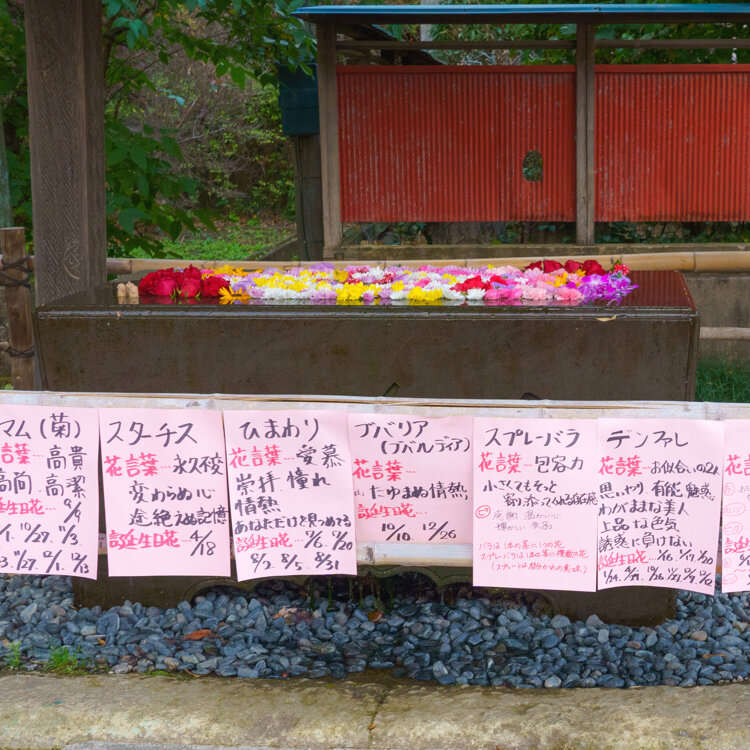 マム(菊)
花言葉…高貴
高尚 高潔
誕生日花… 9/9
10/27
12/3
スターチス
花言葉…永久不変
変わらぬ心
途絶えぬ記憶
誕生日花…4/18
ひまわり
花言葉…愛慕
崇拝 憧れ
情熱
あなただけを見つめてる
誕生日花… 7/20
8/2 8/5 8/31
ブバリア
(ブバルディア)
花言葉…
たゆまぬ情熱
誕生日花…
10/10 12/26
スプレーバラ
花言葉…包容力
小さくてもそっと
感謝 温かい
誕生日花…
バラは1本の茎に1つの花
スプレーバラは1本の茎に複数の花
デンファレ
花言葉…お似合いの2人
思いやり 有能 魅惑
わがままな美人
上品な色気
誘惑に負けない
誕生日花…
花言葉